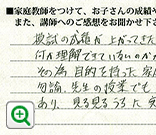 ■家庭教師をつけて、お子さんの成績や
また、講師へのご感想をお聞かせ下
模試の成績が上がってきた
何が理解できていないのかが
その為目的を持った
勿論、先生の授業でも
あり、見る見るうちに